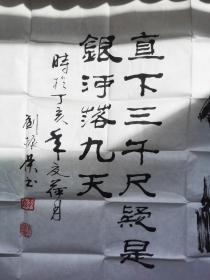 直下三千尺疑是
銀河落九天
時於丁亥年夏荷月
劉振 書